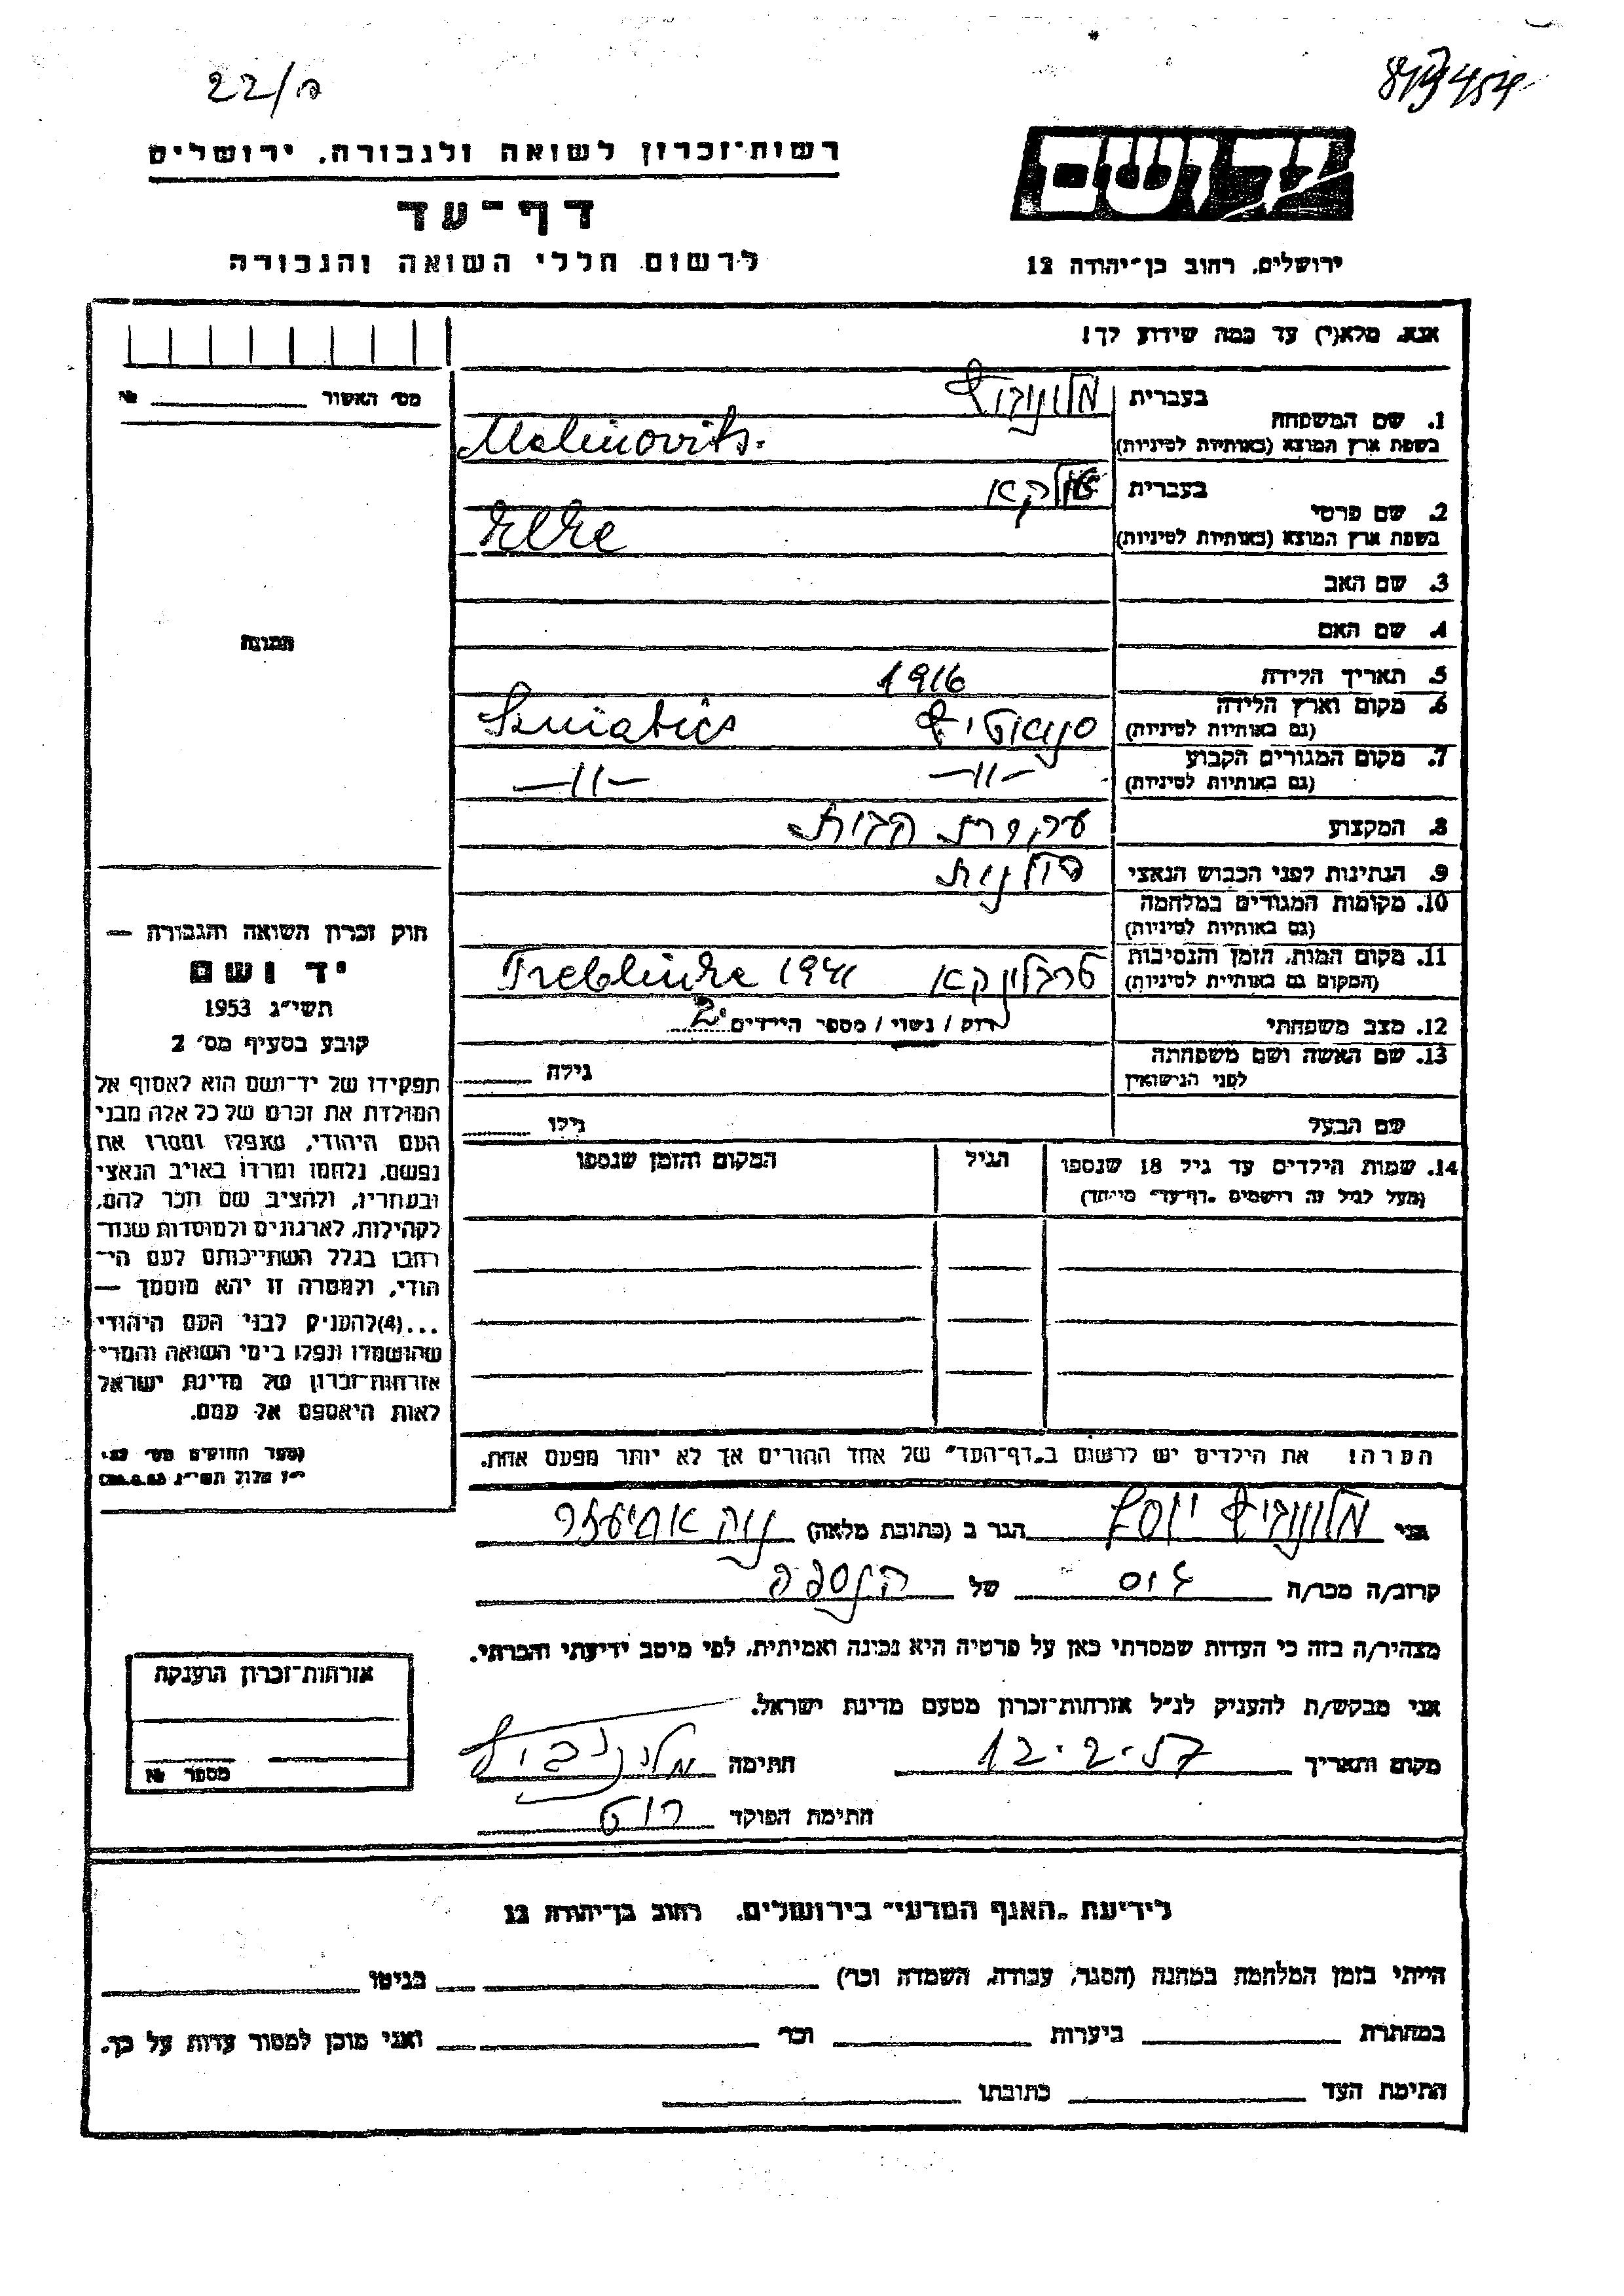 22/מ
רשות־זכרון לשואה ולגבורה, ירושלים
יד ושם
דף־עד
לרשום חללי השואה והגבורה
ירושלים, רחוב בן־יהודה 12
אנא, מלא(י) עד כמה שידוע לך!
מס׳ האשור № ________
1. שם המשפחה
בעברית מלינוביץ
בשפת ארץ המוצא (באותיות לטיניות) Malinovits.
2. שם פרטי
בעברית
בשפת ארץ המוצא (באותיות לטיניות) Elke
3. שם האב
4. שם האם
תמונה
5. תאריך הלידה 1916
6. מקום וארץ הלידה
(גם באותיות לטיניות) סמיאטיץ Semiatics
7. מקום המגורים הקבוע
(גם באותיות לטיניות) —״— —״—
8. המקצוע עקרת הבית
9. הנתינות לפני הכבוש הנאצי פולנית
10. מקומות המגורים במלחמה
(גם באותיות לטיניות)
11. מקום המות, הזמן והנסיבות
(המקום גם באותיות לטיניות) טרבלינקא Treblinke 1941
12. מצב משפחתי רוק / נשוי / מספר הילדים 2
13. שם האשה ושם משפחתה
לפני הנישואין גילה
שם הבעל גילו
14. שמות הילדים עד גיל 18 שנספו הגיל המקום והזמן שנספו
(מעל לגיל זה רושמים „דף־עד״ מיוחד)
חוק זכרון השואה והגבורה —
יד ושם
תשי״ג 1953
קובע בסעיף מס׳ 2
תפקידו של יד־ושם הוא לאסוף אל
המולדת את זכרם של כל אלה מבני
העם היהודי, שנפלו ומסרו את
נפשם, נלחמו ומרדו באויב הנאצי
ובעוזריו, ולהציב שם וזכר להם,
לקהילות, לארגונים ולמוסדות שנח־
רבו בגלל השתייכותם לעם הי־
הודי, ולמטרה זו יהא מוסמך —
...(4) להעניק לבני העם היהודי
שהושמדו ונפלו בימי השואה והמרי
אזרחות־זכרון של מדינת ישראל
לאות היאספם אל עמם.
(ספר החוקים מס׳ 132,
י״ז אלול תשי״ג 28.8.53)
הערה! את הילדים יש לרשום ב„דף־העד״ של אחד ההורים אך לא יותר מפעם אחת.
אני מלינוביץ יוסף הגר ב (כתובת מלאה) נוה אחיעזר
קרוב/ה מכר/ה גיס של הנספה
מצהיר/ה בזה כי העדות שמסרתי כאן על פרטיה היא נכונה ואמיתית, לפי מיטב ידיעתי והכרתי.
אני מבקש/ת להעניק לנ״ל אזרחות־זכרון מטעם מדינת ישראל.
מקום ותאריך 12.2.57 חתימה מלינוביץ
חתימת הפוקד
אזרחות־זכרון הוענקה
מספר №
לידיעת „האגף המדעי״ בירושלים, רחוב בן־יהודה 12
הייתי בזמן המלחמה במחנה (הסגר, עבודה, השמדה וכו׳) ________ בגיטו ________
במחתרת ________ ביערות ________ וכו׳ ________ ואני מוכן למסור עדות על כך.
חתימת העד ________ כתובתו ________